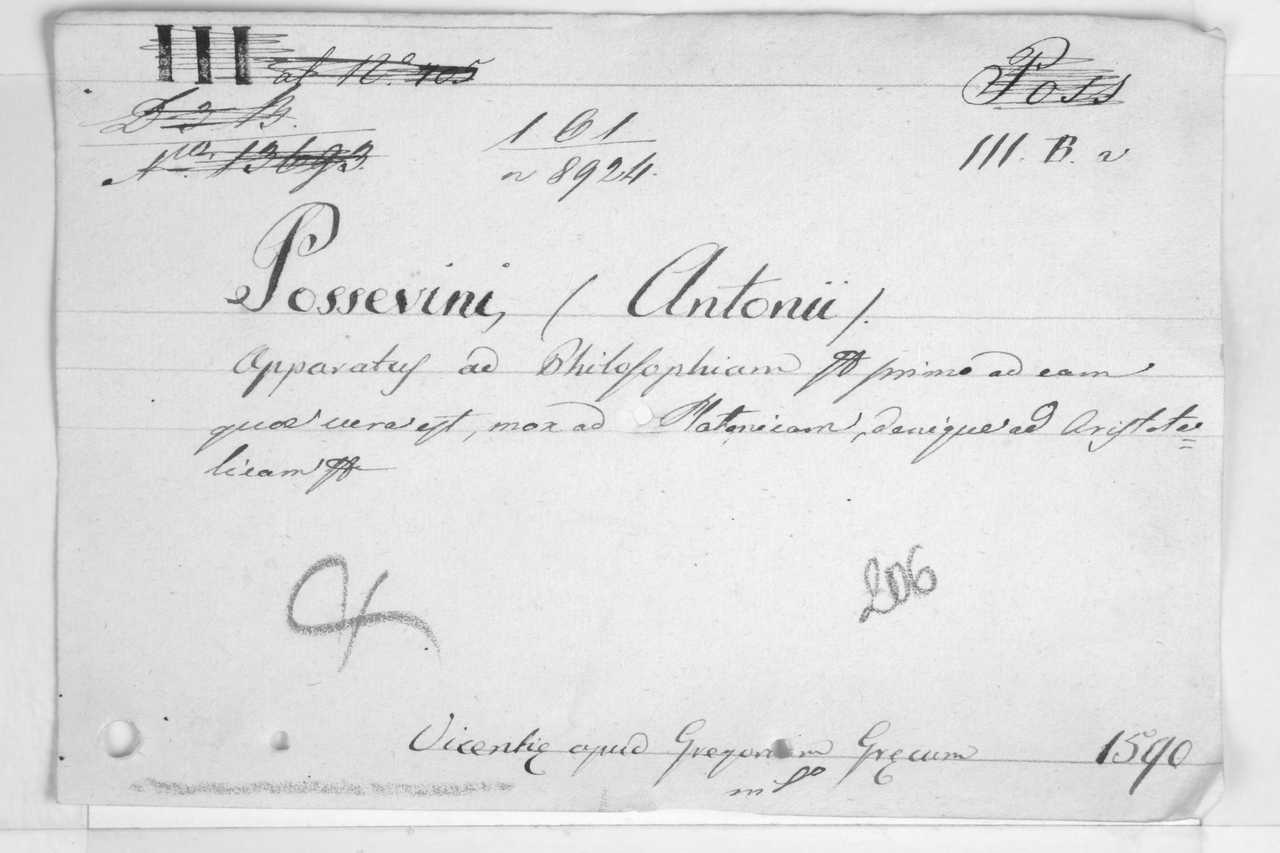 III ab N.o 105
Poss
D 3 B.
161
III. B. 2
Nro. 13693.
8924.
Possevini, ( Antonii ).
Apparatus ad Philosophiam primo ad eam
quae vera est, mox ad Platonicam, denique ad Aristote=
licam
4
206
Vicentię apud Gregorium Gręcum 1590